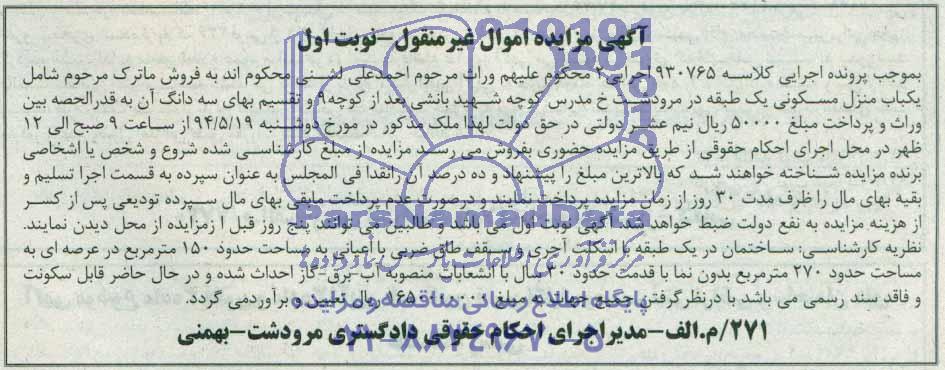 آگهی مزایده اموال غیر منقول-نوبت اول
بموجب پرونده اجرایی کلاسه ۹۳۰۷۶۵ اجرایی ۲ محکوم علیهم وراث مرحوم احمدعلی لشنی محکوم اند به فروش ماترک مرحوم شامل
یکباب منزل مسکونی یک طبقه در مرودشت خ مدرس کوچه شهید بانشی بعد از کوچه ۹ و تقسیم بهای سه دانگ آن به قدرالحصه بین
وراث و پرداخت مبلغ ۵۰۰۰۰ ریال نیم عشر دولتی در حق دولت لهذا ملک مذکور در مورخ دوشنبه ۹۴/۵/۱۹ از ساعت ۹ صبح الی ۱۲
ظهر در محل اجرای احکام حقوقی از طریق مزایده حضوری بفروش می رسد مزایده از مبلغ کارشناسی شده شروع و شخص یا اشخاصی
برنده مزایده شناخته خواهند شد که بالاترین مبلغ را پیشنهاد و ده درصد آن رانقدا فی المجلس به عنوان سپرده به قسمت اجرا تسلیم و
بقیه بهای مال را ظرف مدت ۳۰ روز از زمان مزایده پرداخت نمایند و درصورت عدم پرداخت مابقی بهای مال سپرده تودیعی پس از کسر
از هزینه مزایده به نفع دولت ضبط خواهد شد. آگهی نوبت اول می باشد و طالبین می توانند پنج روز قبل از مزایده از محل دیدن نمایند.
نظریه کارشناسی: ساختمان در یک طبقه با اسکلت آجری و سقف طاق ضربی با اعیانی به مساحت حدود ۱۵۰ مترمربع در عرصه ای به
مساحت حدود ۲۷۰ مترمربع بدون نما با قدمت حدود ۳۰ سال با انشعابات منصوبه آب-برق-گاز احداث شده و در حال حاضر قابل سکونت
و فاقد سند رسمی می باشد با درنظرگرفتن جمیع جهات به مبلغ ریال تعیین و برآوردمی گردد.
۲۷۱/م.الف-مدیر اجرای احکام حقوقی دادگستری مرودشت-بهمنی
ParsNamadData
پایگاه اطلاع رسانی مناقصه و مزایده